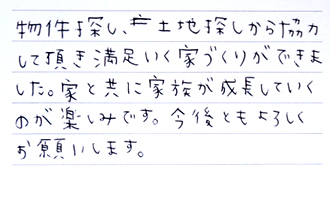 物件探し、土地探しから協力
して頂き満足いく家づくりができま
した。家と共に家族が成長していく
のが楽しみです。今後ともよろしく
お願いします。